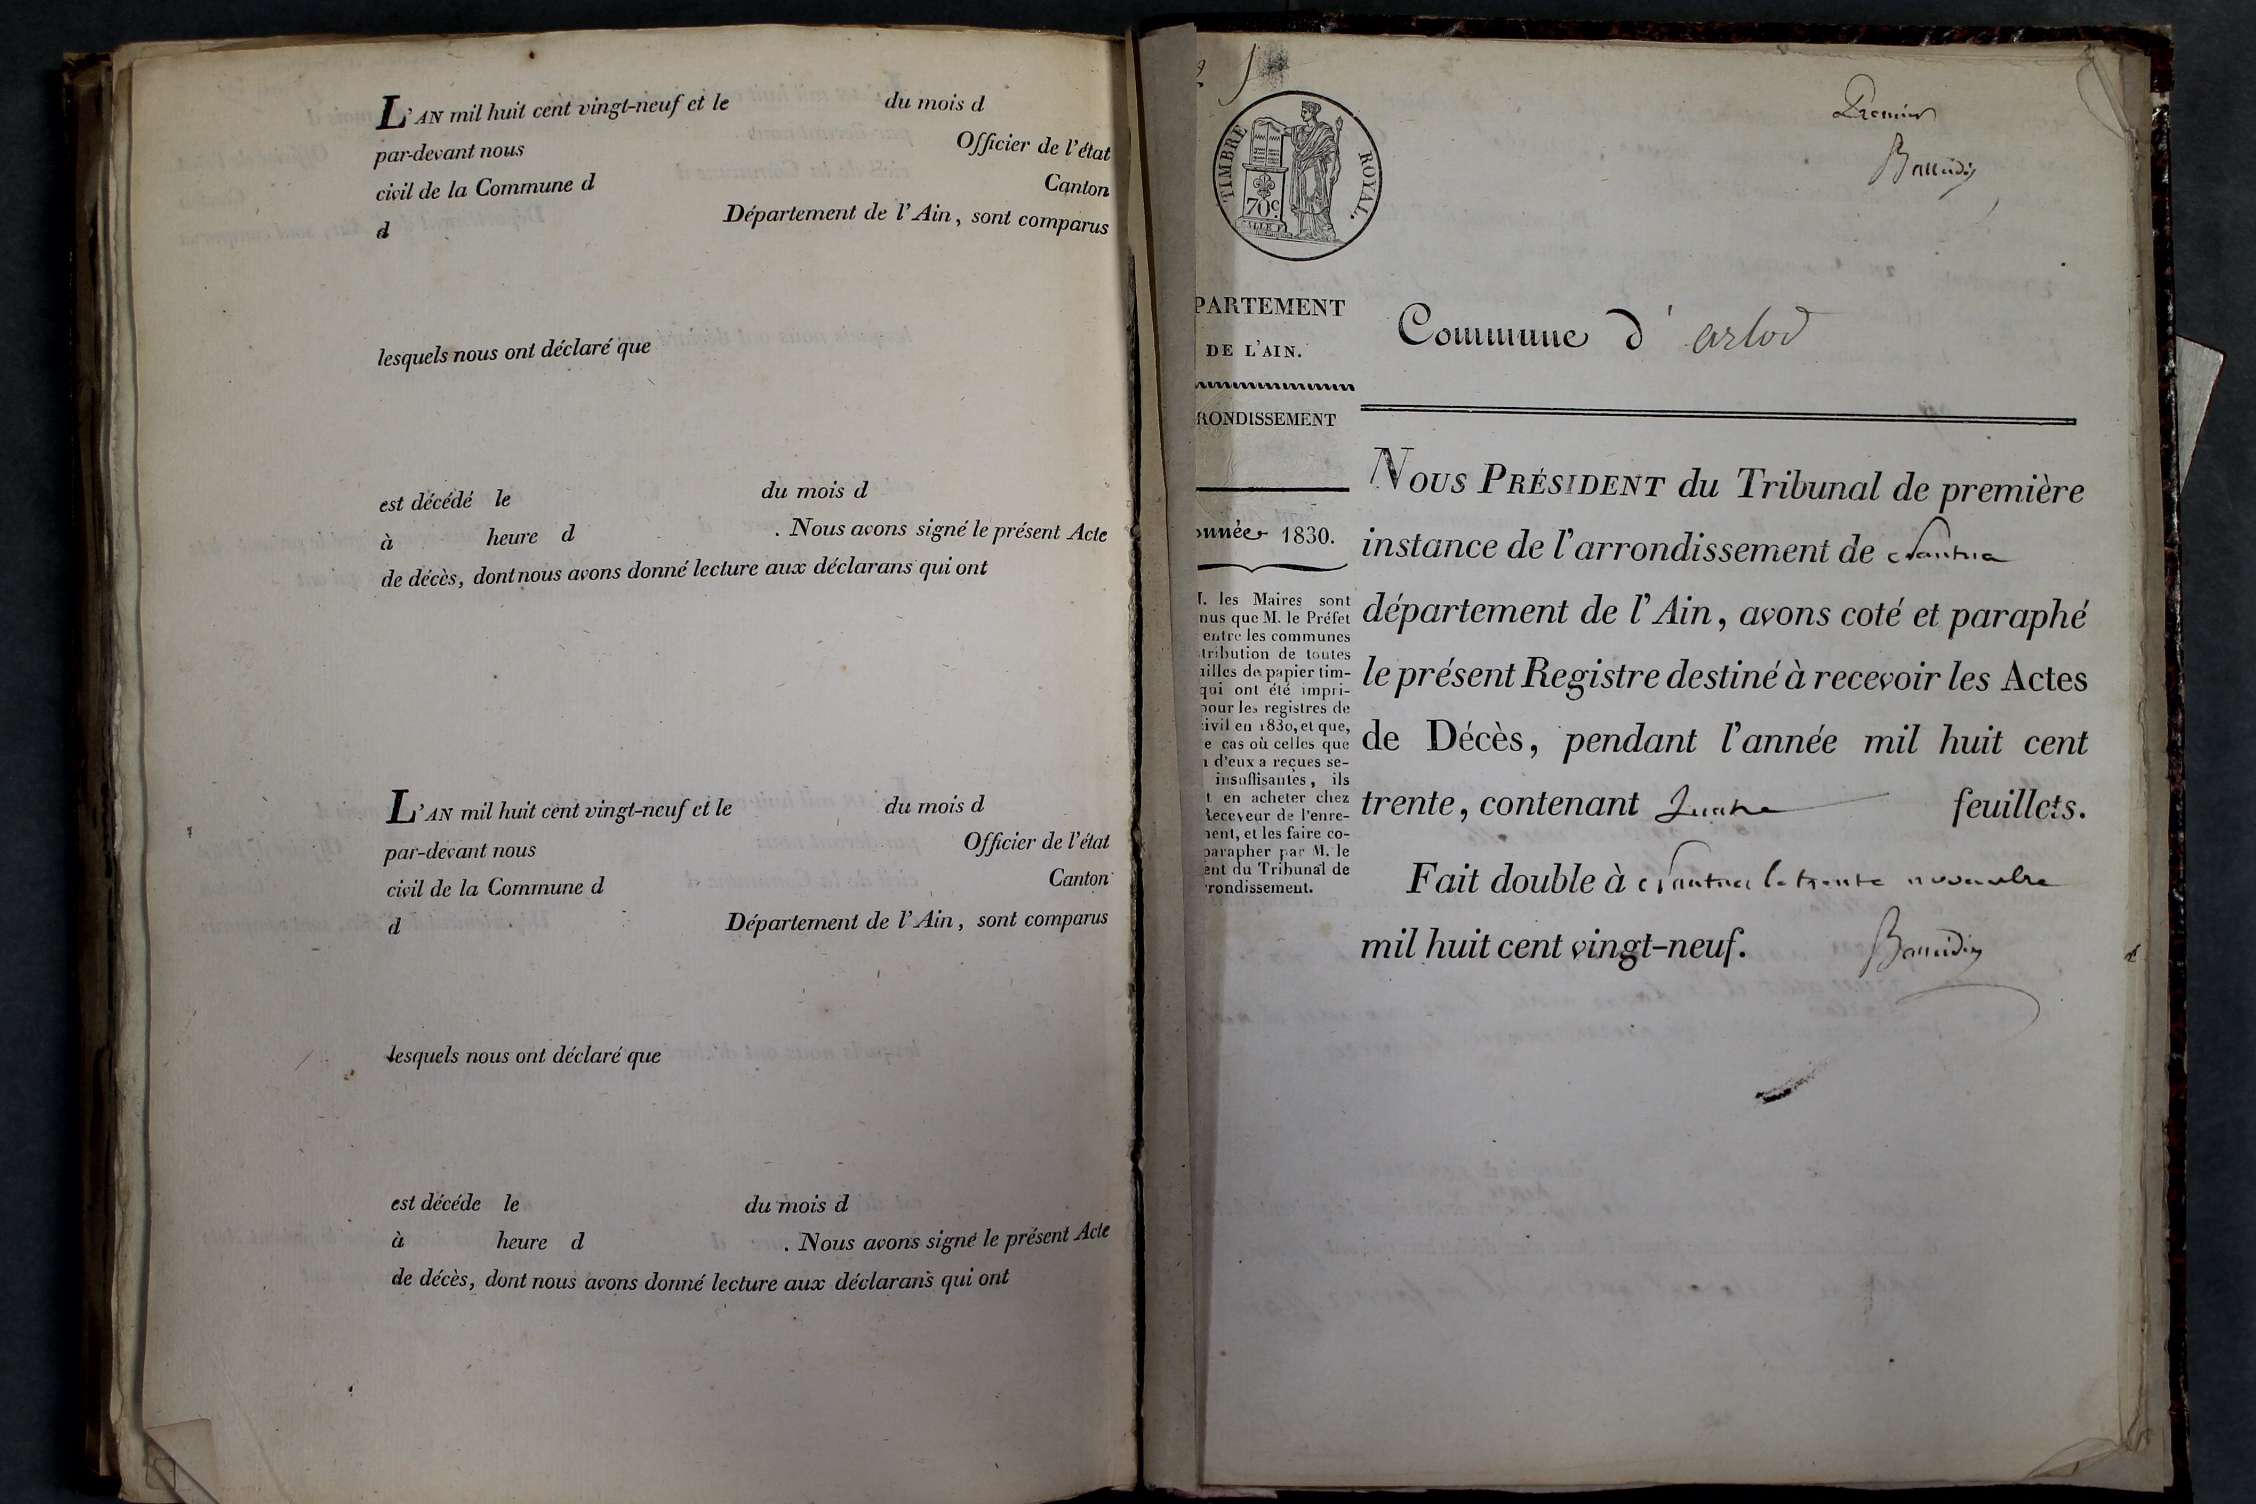 L'AN mil huit cent vingt-neuf et le du mois d
par-devant nous Officier de l'état
civil de la Commune d Canton
d Département de l'Ain, sont comparus
lesquels nous ont déclaré que
est décédé le du mois d
à heure d . Nous avons signé le présent Acte
de décès, dont nous avons donné lecture aux déclarans qui ont
L'AN mil huit cent vingt-neuf et le du mois d
par-devant nous Officier de l'état
civil de la Commune d Canton
d Département de l'Ain, sont comparus
lesquels nous ont déclaré que
est décéde le du mois d
à heure d . Nous avons signé le présent Acte
de décès, dont nous avons donné lecture aux déclarans qui ont
Premier
TIMBRE ROYAL.
70c
PARTEMENT
DE L'AIN.
RONDISSEMENT
nnée 1830.
M. les Maires sont
nus que M. le Préfet
entre les communes
tribution de toutes
uilles de papier tim-
qui ont été impri-
pour les registres de
civil en 1830, et que,
e cas où celles que
n d'eux a reçues se-
insuffisantes, ils
t en acheter chez
Receveur de l'enre-
ment, et les faire co-
parapher par M. le
ent du Tribunal de
rondissement.
Commune d'arlod
NOUS PRÉSIDENT du Tribunal de première
instance de l'arrondissement de Nantua
département de l'Ain, avons coté et paraphé
le présent Registre destiné à recevoir les Actes
de Décès, pendant l'année mil huit cent
trente, contenant quatre feuillets.
Fait double à Nantua le trente novembre
mil huit cent vingt-neuf.